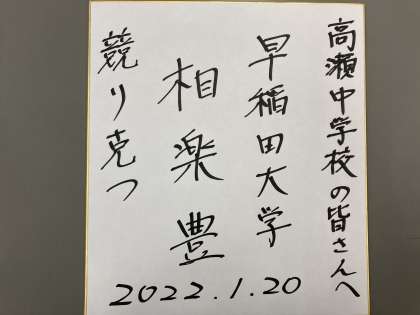 高瀬中学校の皆さんへ
早稲田大学
相楽豊
競り克つ
2022.1.20